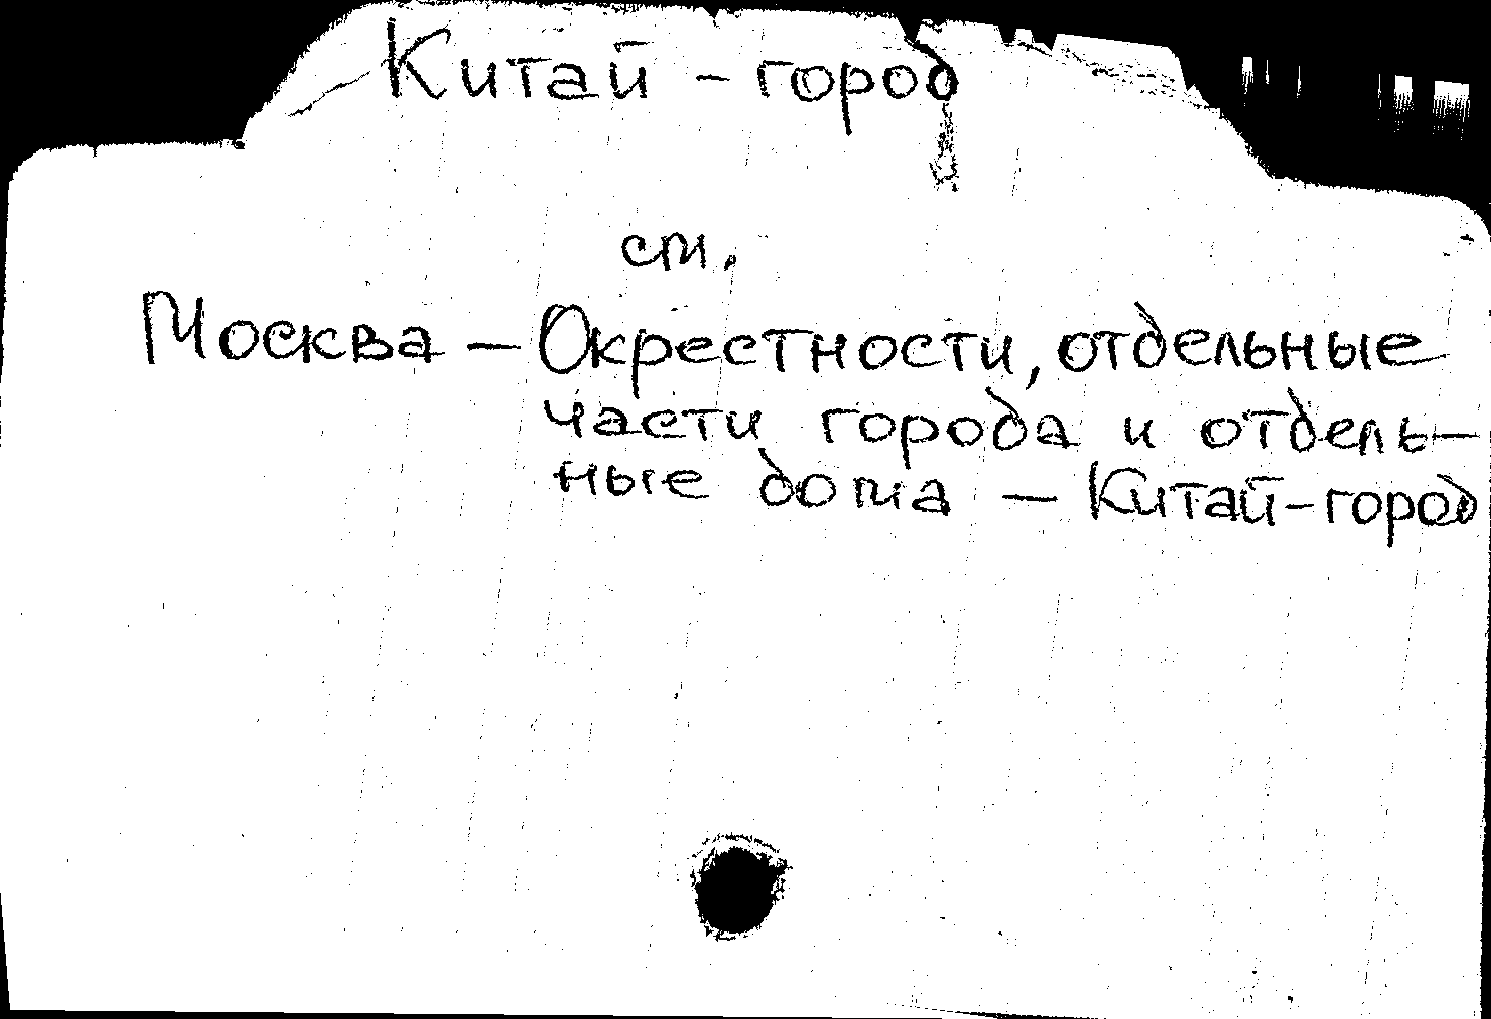 Китай - город
см.
Москва — Окрестности, отдельные
части города и отдель-
ные дома — Китай-город